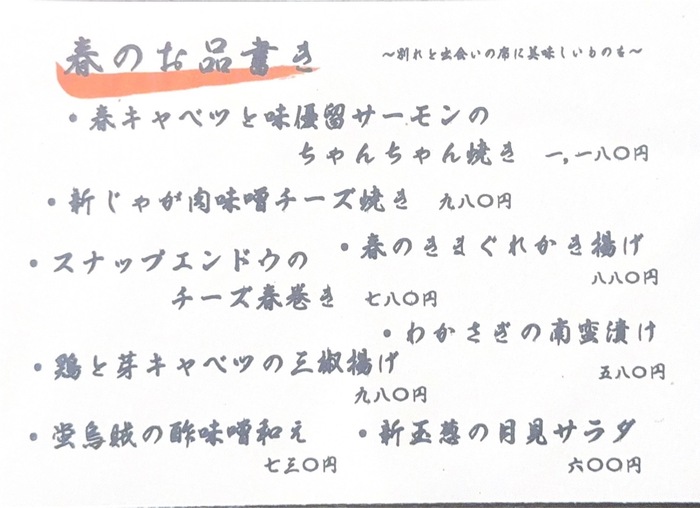 春のお品書き
〜別れと出会いの席に美味しいものを〜
・春キャベツと味優留サーモンの
ちゃんちゃん焼き 一,一八〇円
・新じゃが肉味噌チーズ焼き 九八〇円
・スナップエンドウの
チーズ春巻き 七八〇円
・春のきまぐれかき揚げ
八八〇円
・わかさぎの南蛮漬け
五八〇円
・鶏と芽キャベツの三椒揚げ
九八〇円
・蛍烏賊の酢味噌和え
七三〇円
・新玉葱の月見サラダ
六〇〇円